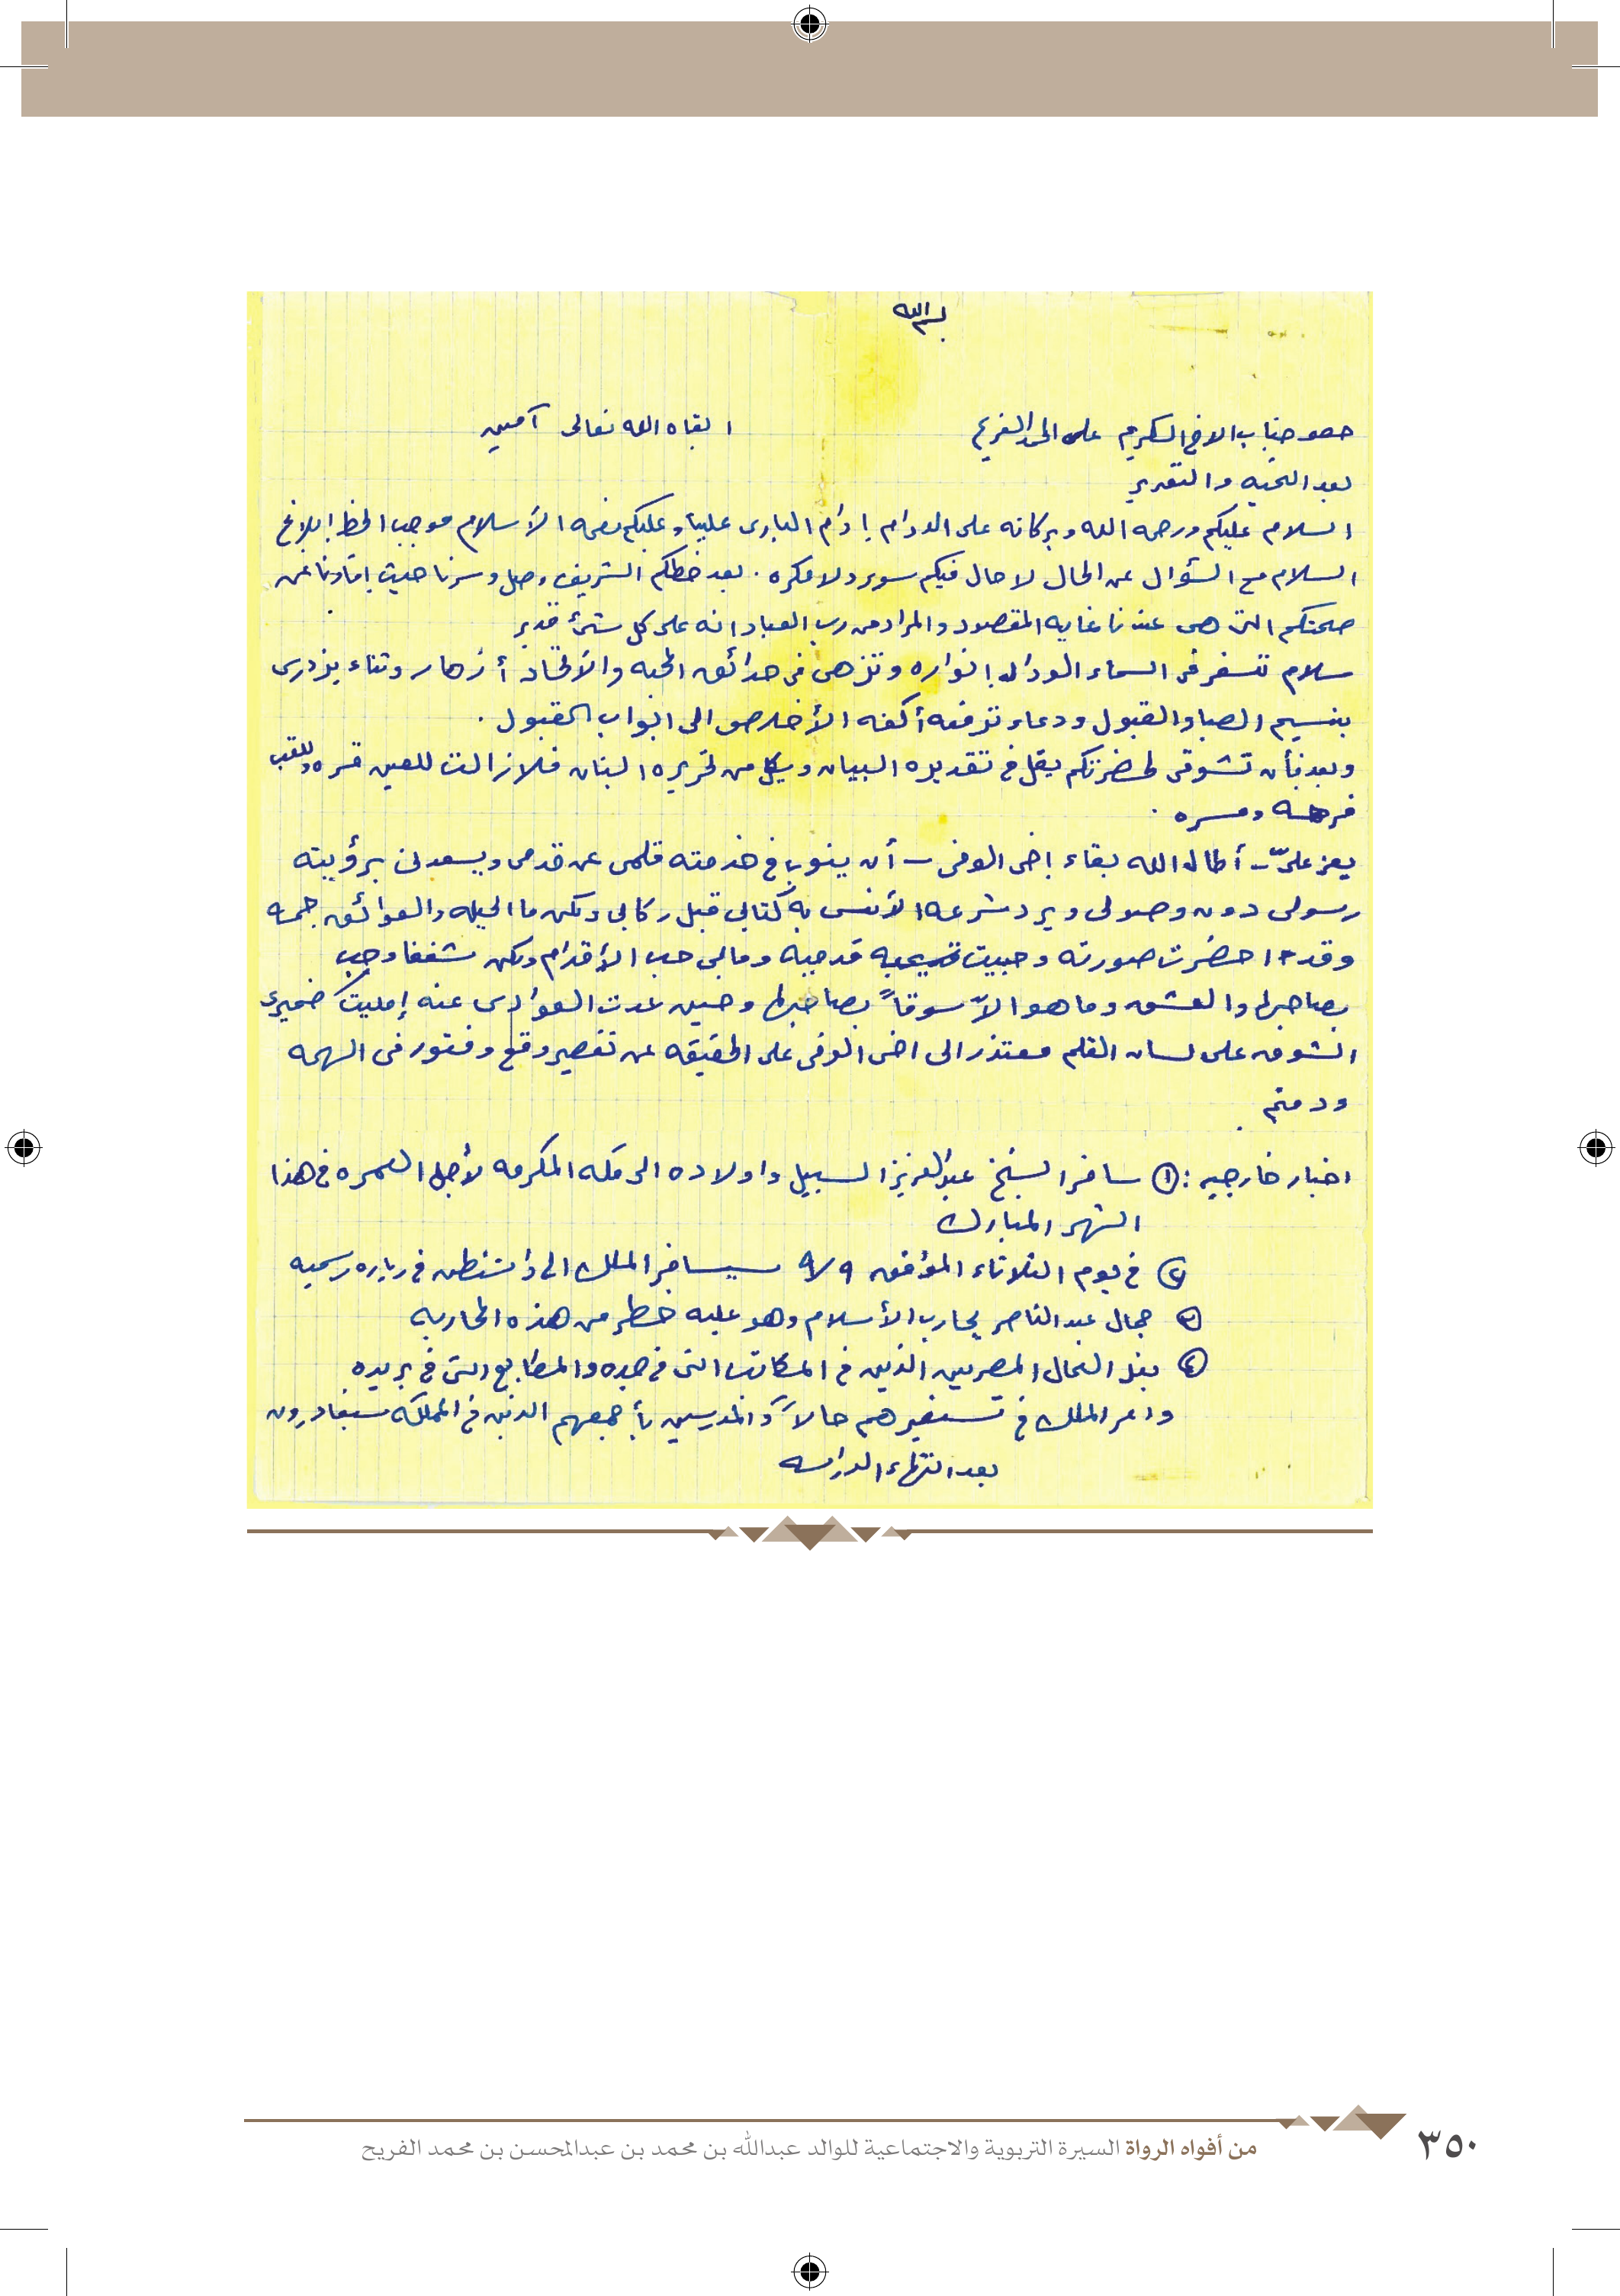 بسم الله
حضو جناب الاخ المكرم على الحمد الفريح ابقاه الله تعالى آمين
بعد التحيه والتقدير
السلام عليكم ورحمه الله وبركاته على الدوام إدام البارى علينا وعليكم نعمه الأسلام موجب الخط إبلاغ
السلام مع السؤال عن الحال لا حال فيكم سوء ولا مكره . بعد خطكم الشريف وصل وسرنا حيث إفادنا عن
صحتكم التى هى عندنا غايه المقصود والمراد من رب العباد انه على كل شئ قدير
سلام تسفر فى السماء الوداد انواره وتزهى فى حدائق المحبه والأتحاد أزهار وثناء يزدرى
بنسيم الصبا والقبول ودعاء ترفعه أكفه الأخلاص الى ابواب القبول .
وبعد فأن تشوقى لحضرتكم يقل فى تقديره البيان ويكل من تحريره البنان فلا زالت للعين قره وللقلب
فرحه ومسره .
يعز علىّ ـ أطال الله بقاء إخى الوفى ـ أن ينوب فى خدمته قلمى عن قدمى ويسعدنى برؤيته
رسولى دون وصولى ويرد شرعه الأنس به كتابى قبل ركابى ولكن ما الحيله والعوائق جمه
وقد احضرت صورته وحبيت قدميه ومابى حب الأقدام ولكن شغفا وحب
بصاحبها والعشق وما هو الاّ سوقاً بصاحبها وحين عدت العوادى عنه إمليت ضميرى
الشوق على لسان القلم معتذر الى اخى الوفى على الحقيقه عن تقصير وقع وفتور فى الهمه
ودمتم .
اخبار خارجيه : ① سافر الشيخ عبدالعزيز السبيل واولاده الى مكه المكرمه لأجل العمره فى هذا
الشهر المبارك
② فى يوم الثلاثاء المؤفق ٩/٩ سيسافر الملك الى واشنطن فى زياره رسميه
③ جمال عبد الناصر يحارب الأسلام وهو عليه خطر من هذه المحاربه
④ بغل العمال المصريين الذين فى المكاتب التى فى جده والمطابع التى فى بريده
وامر الملك فى تسفيرهم حالاً والمدرسين بأجمعهم الذين فى المملكه سيغادرون
بعد انتهاء الدراسه
من أفواه الرواة السيرة التربوية والاجتماعية للوالد عبدالله بن محمد بن عبدالمحسن بن محمد الفريح
٣٥٠